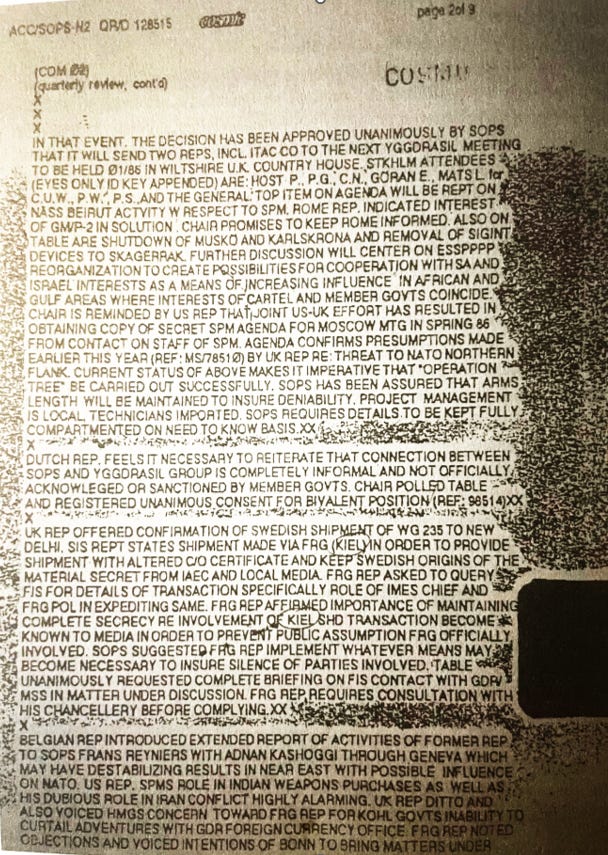 ACC/SOPS-N2 QR/D 128515 cosmic page 2of 9
(COM Ø2) COSMIC
(quarterly review, cont'd)
X
X
X
X
IN THAT EVENT. THE DECISION HAS BEEN APPROVED UNANIMOUSLY BY SOPS
THAT IT WILL SEND TWO REPS, INCL. ITAC CO TO THE NEXT YGGDRASIL MEETING
TO BE HELD Ø1/86 IN WILTSHIRE U.K. COUNTRY HOUSE. STKHLM ATTENDEES
(EYES ONLY ID KEY APPENDED) ARE: HOST P., P.G., C.N., GÖRAN E., MATS L. for
C.U.W., P.W., P.S., AND THE GENERAL. TOP ITEM ON AGENDA WILL BE REPT ON
NASS BEIRUT ACTVITY W RESPECT TO SPM. ROME REP. INDICATED INTEREST.
OF GM/P-2 IN SOLUTION. CHAIR PROMISES TO KEEP ROME INFORMED. ALSO ON
TABLE ARE SHUTDOWN OF MUSKÖ AND KARLSKRONA AND REMOVAL OF SIGINT
DEVICES TO SKAGERRAK. FURTHER DISCUSSION WILL CENTER ON ESSPPPPP
REORGANIZATION TO CREATE POSSIBILITIES FOR COOPERATION WITH SA AND
ISRAEL INTERESTS AS A MEANS OF INCREASING INFLUENCE IN AFRICAN AND
GULF AREAS WHERE INTERESTS OF CARTEL AND MEMBER GOVTS COINCIDE.
CHAIR IS REMINDED BY US REP THAT JOINT US-UK EFFORT HAS RESULTED IN
OBTAINING COPY OF SECRET SPM AGENDA FOR MOSCOW MTG IN SPRING 86
FROM CONTACT ON STAFF OF SPM. AGENDA CONFIRMS PRESUMPTIONS MADE
EARLIER THIS YEAR (REF: MS/7851Ø) BY UK REP RE: THREAT TO NATO NORTHERN
FLANK. CURRENT STATUS OF ABOVE MAKES IT IMPERATIVE THAT "OPERATION
TREE" BE CARRIED OUT SUCCESSFULLY. SOPS HAS BEEN ASSURED THAT ARMS
LENGTH WILL BE MAINTAINED TO INSURE DENIABILITY. PROJECT MANAGEMENT
IS LOCAL, TECHNICIANS IMPORTED. SOPS REQUIRES DETAILS TO BE KEPT FULLY
COMPARTMENTED ON NEED TO KNOW BASIS.XX
X
DUTCH REP. FEELS IT NECESSARY TO REITERATE THAT CONNECTION BETWEEN
SOPS AND YGGDRASIL GROUP IS COMPLETELY INFORMAL AND NOT OFFICIALLY
ACKNOWLEGED OR SANCTIONED BY MEMBER GOVTS. CHAIR POLLED TABLE
AND REGISTERED UNANIMOUS CONSENT FOR BIVALENT POSITION (REF: 98514)XX
X
UK REP OFFERED CONFIRMATION OF SWEDISH SHIPMENT OF WG 235 TO NEW
DELHI. SIS REPT STATES SHIPMENT MADE VIA FRG (KIEL) IN ORDER TO PROVIDE
SHIPMENT WITH ALTERED C/O CERTIFICATE AND KEEP SWEDISH ORIGINS OF THE
MATERIAL SECRET FROM IAEC AND LOCAL MEDIA. FRG REP ASKED TO QUERY
FIS FOR DETAILS OF TRANSACTION SPECIFICALLY ROLE OF IMES CHIEF AND
FRG POL IN EXPEDITING SAME. FRG REP AFFIRMED IMPORTANCE OF MAINTAINING
COMPLETE SECRECY RE INVOLVEMENT OF KIEL SHD TRANSACTION BECOME
KNOWN TO MEDIA IN ORDER TO PREVENT PUBLIC ASSUMPTION FRG OFFICIALLY
INVOLVED. SOPS SUGGESTED FRG REP IMPLEMENT WHATEVER MEANS MAY
BECOME NECESSARY TO INSURE SILENCE OF PARTIES INVOLVED. TABLE
UNANIMOUSLY REQUESTED COMPLETE BRIEFING ON FIS CONTACT WITH GDR/
MSS IN MATTER UNDER DISCUSSION. FRG REP REQUIRES CONSULTATION WITH
HIS CHANCELLERY BEFORE COMPLYING.XX
X
BELGIAN REP INTRODUCED EXTENDED REPORT OF ACTIVITIES OF FORMER REP
TO SOPS FRANS REYNIERS WITH ADNAN KASHOGGI THROUGH GENEVA WHICH
MAY HAVE DESTABILIZING RESULTS IN NEAR EAST WITH POSSIBLE INFLUENCE
ON NATO. US REP. SPMS ROLE IN INDIAN WEAPONS PURCHASES AS WELL AS
HIS DUBIOUS ROLE IN IRAN CONFLICT HIGHLY ALARMING. UK REP DITTO AND
ALSO VOICED HMGS CONCERN TOWARD FRG REP FOR KOHL GOVTS INABILITY TO
CURTAIL ADVENTURES WITH GDR FOREIGN CURRENCY OFFICE. FRG REP NOTED
OBJECTIONS AND VOICED INTENTIONS OF BONN TO BRING MATTERS UNDER